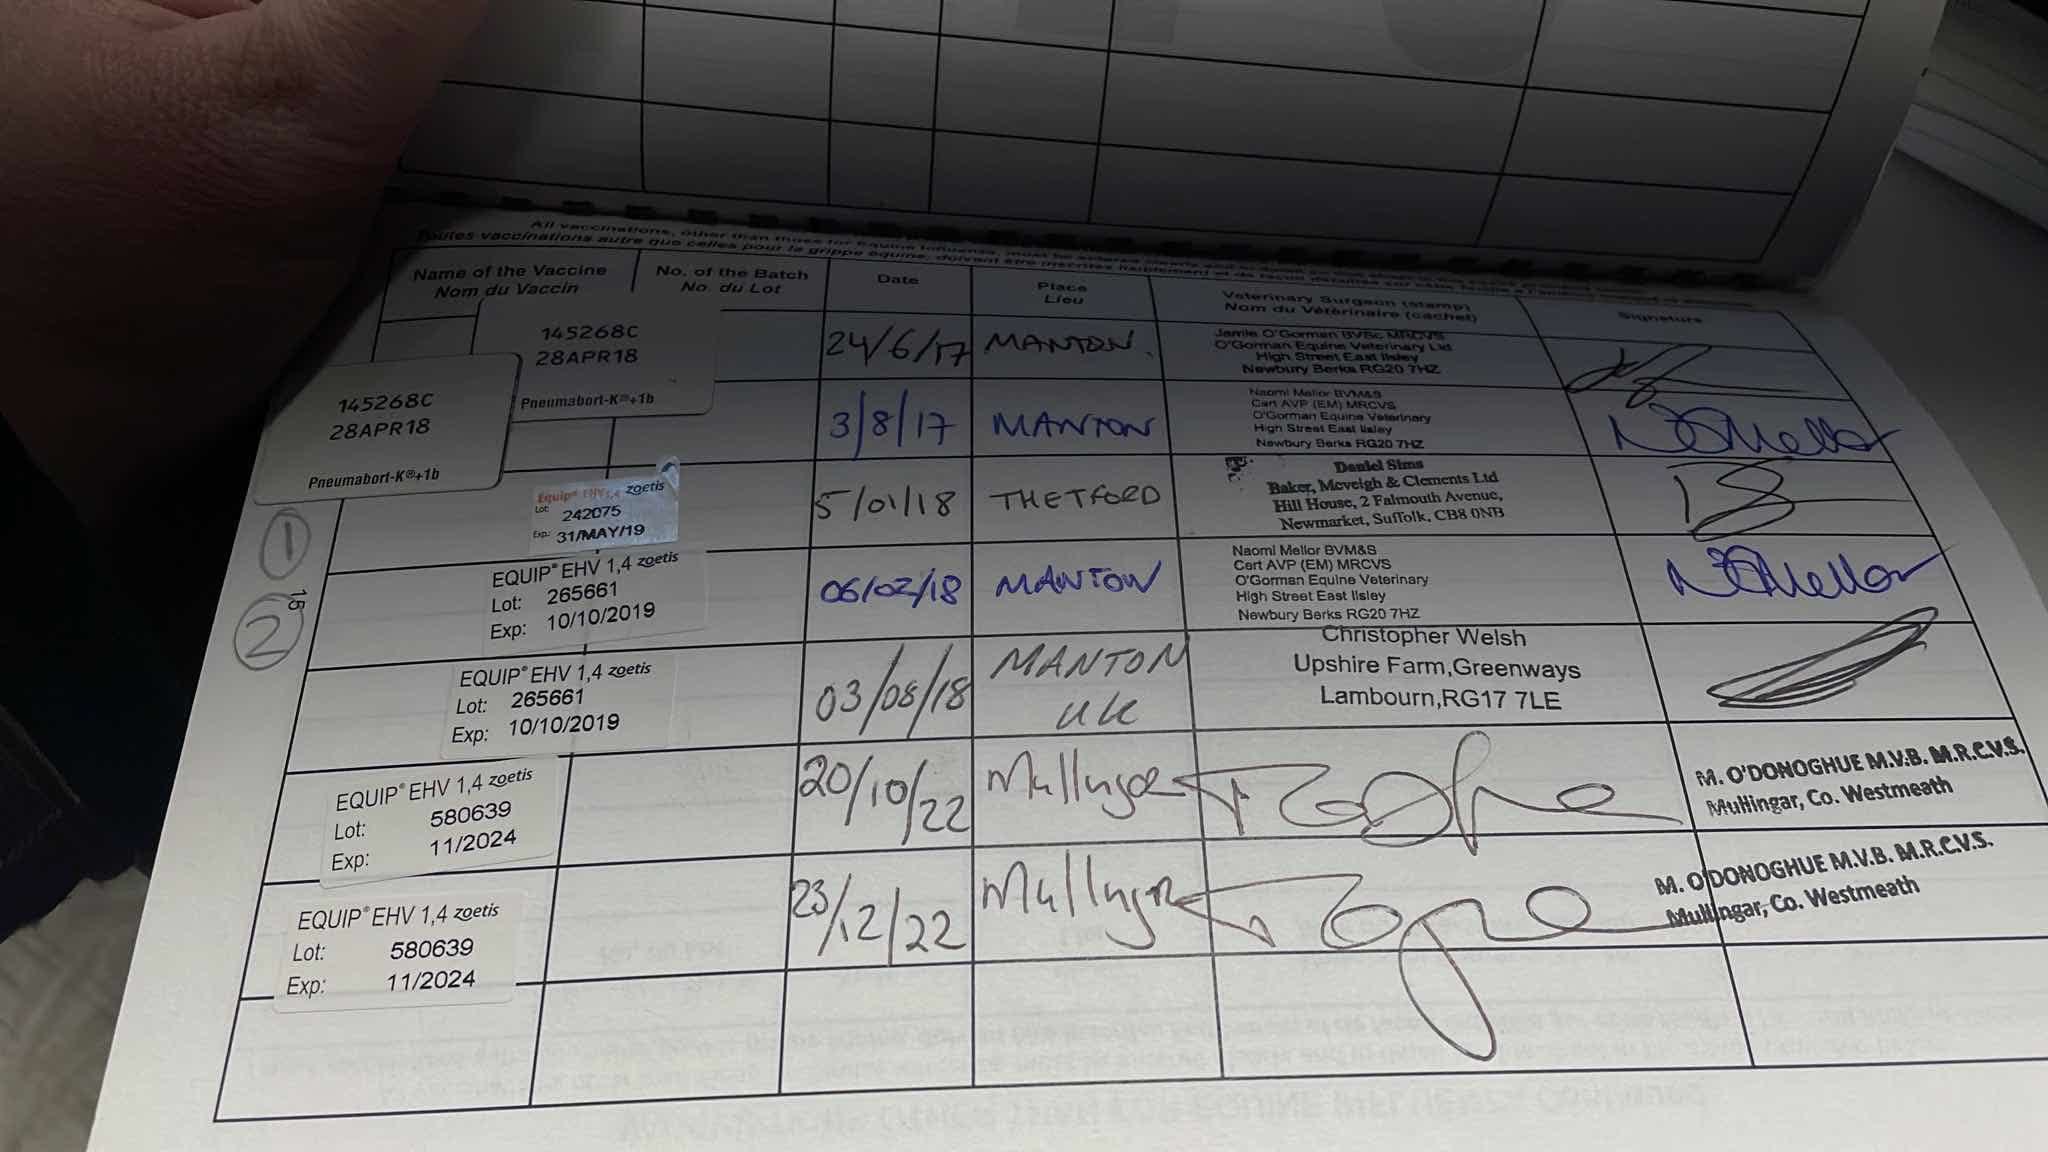 All vaccinations, other than those for equine influenza, must be entered clearly and in detail
Toutes vaccinations autre que celles pour la grippe équine, doivent être inscrites lisiblement et de façon détaillée
Name of the Vaccine
Nom du Vaccin
No. of the Batch
No. du Lot
Date
Place
Lieu
Veterinary Surgeon (stamp)
Nom du Vétérinaire (cachet)
Signature
145268C
28APR18
Pneumabort-K®+1b
24/6/17
MANTON.
Jamie O'Gorman BVSc MRCVS
O'Gorman Equine Veterinary Ltd
High Street East Ilsley
Newbury Berks RG20 7HZ
145268C
28APR18
Pneumabort-K®+1b
3/8/17
MANTON
Naomi Mellor BVM&S
Cert AVP (EM) MRCVS
O'Gorman Equine Veterinary
High Street East Ilsley
Newbury Berks RG20 7HZ
1
Equip® EHV 1,4 zoetis
Lot: 242075
Exp: 31/MAY/19
5/01/18
THETFORD
Daniel Sims
Baker, Mcveigh & Clements Ltd
Hill House, 2 Falmouth Avenue,
Newmarket, Suffolk, CB8 0NB
15
2
EQUIP® EHV 1,4 zoetis
Lot: 265661
Exp: 10/10/2019
06/02/18
MANTON
Naomi Mellor BVM&S
Cert AVP (EM) MRCVS
O'Gorman Equine Veterinary
High Street East Ilsley
Newbury Berks RG20 7HZ
EQUIP® EHV 1,4 zoetis
Lot: 265661
Exp: 10/10/2019
03/08/18
MANTON
UK
Christopher Welsh
Upshire Farm,Greenways
Lambourn,RG17 7LE
EQUIP® EHV 1,4 zoetis
Lot: 580639
Exp: 11/2024
20/10/22
Mullingar
M. O'DONOGHUE M.V.B. M.R.C.V.S.
Mullingar, Co. Westmeath
EQUIP® EHV 1,4 zoetis
Lot: 580639
Exp: 11/2024
23/12/22
Mullingar
M. O'DONOGHUE M.V.B. M.R.C.V.S.
Mullingar, Co. Westmeath